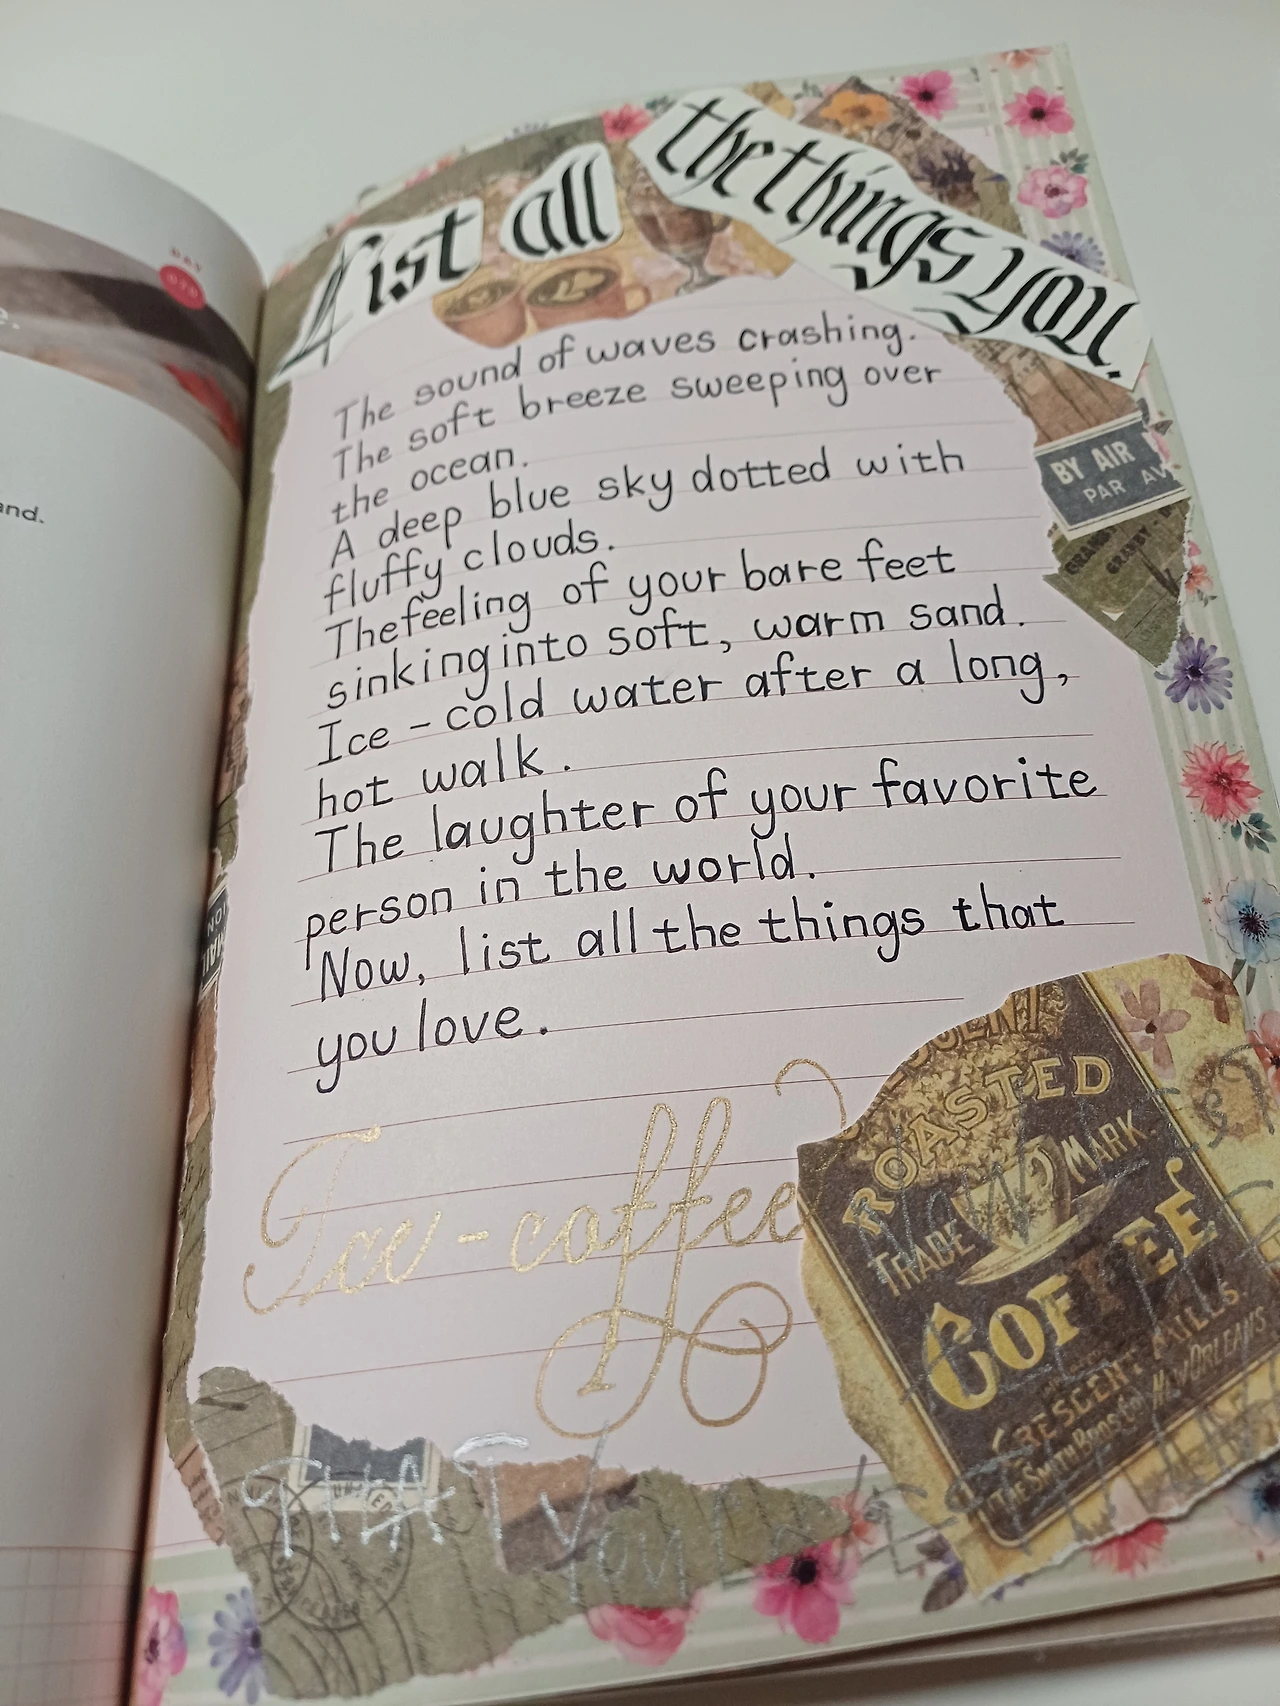 DAY
and.
List all
the things you
The sound of waves crashing.
The soft breeze sweeping over
the ocean.
A deep blue sky dotted with
fluffy clouds.
The feeling of your bare feet
sinking into soft, warm sand.
Ice-cold water after a long,
hot walk.
The laughter of your favorite
person in the world.
Now, list all the things that
you love.
BY AIR
PAR AV
Ice-coffee
ROASTED
TRADE MARK
COFFEE
CRESCENT MILLS.
NEW ORLEANS
THAT You